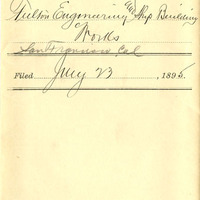 Fulton Engineering and Ship Building
Works
San Francisco, Cal
Filed July 23, 1895.